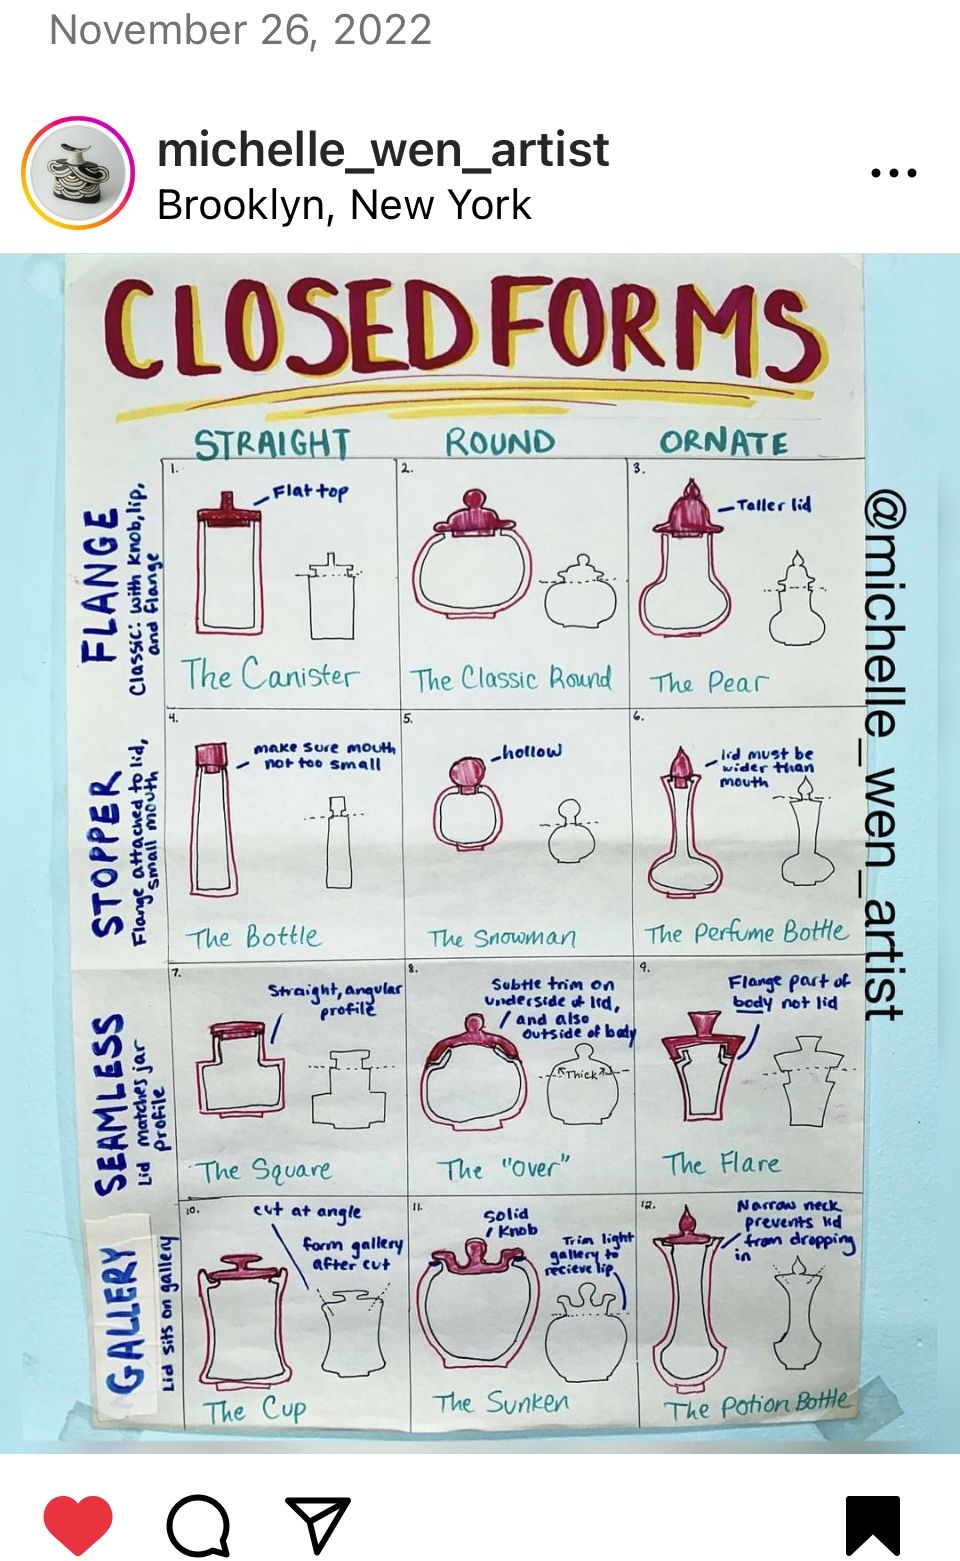 November 26, 2022
michelle_wen_artist
Brooklyn, New York
CLOSED FORMS
STRAIGHT
ROUND
ORNATE
FLANGE
Classic: with knob, lip,
and flange
1.
Flat top
The Canister
2.
The Classic Round
3.
Taller lid
The Pear
STOPPER
Flange attached to lid,
small mouth
4.
make sure mouth
not too small
The Bottle
5.
hollow
The Snowman
6.
lid must be
wider than
mouth
The Perfume Bottle
SEAMLESS
Lid matches jar
profile
7.
Straight, angular
profile
The Square
8.
Subtle trim on
underside of lid,
and also
outside of body
Thick
The "Over"
9.
Flange part of
body not lid
The Flare
GALLERY
Lid sits on gallery
10.
cut at angle
form gallery
after cut
The Cup
11.
Solid
Knob
Trim light
gallery to
recieve lip
The Sunken
12.
Narrow neck
prevents lid
from dropping
in
The Potion Bottle
@michelle_wen_artist